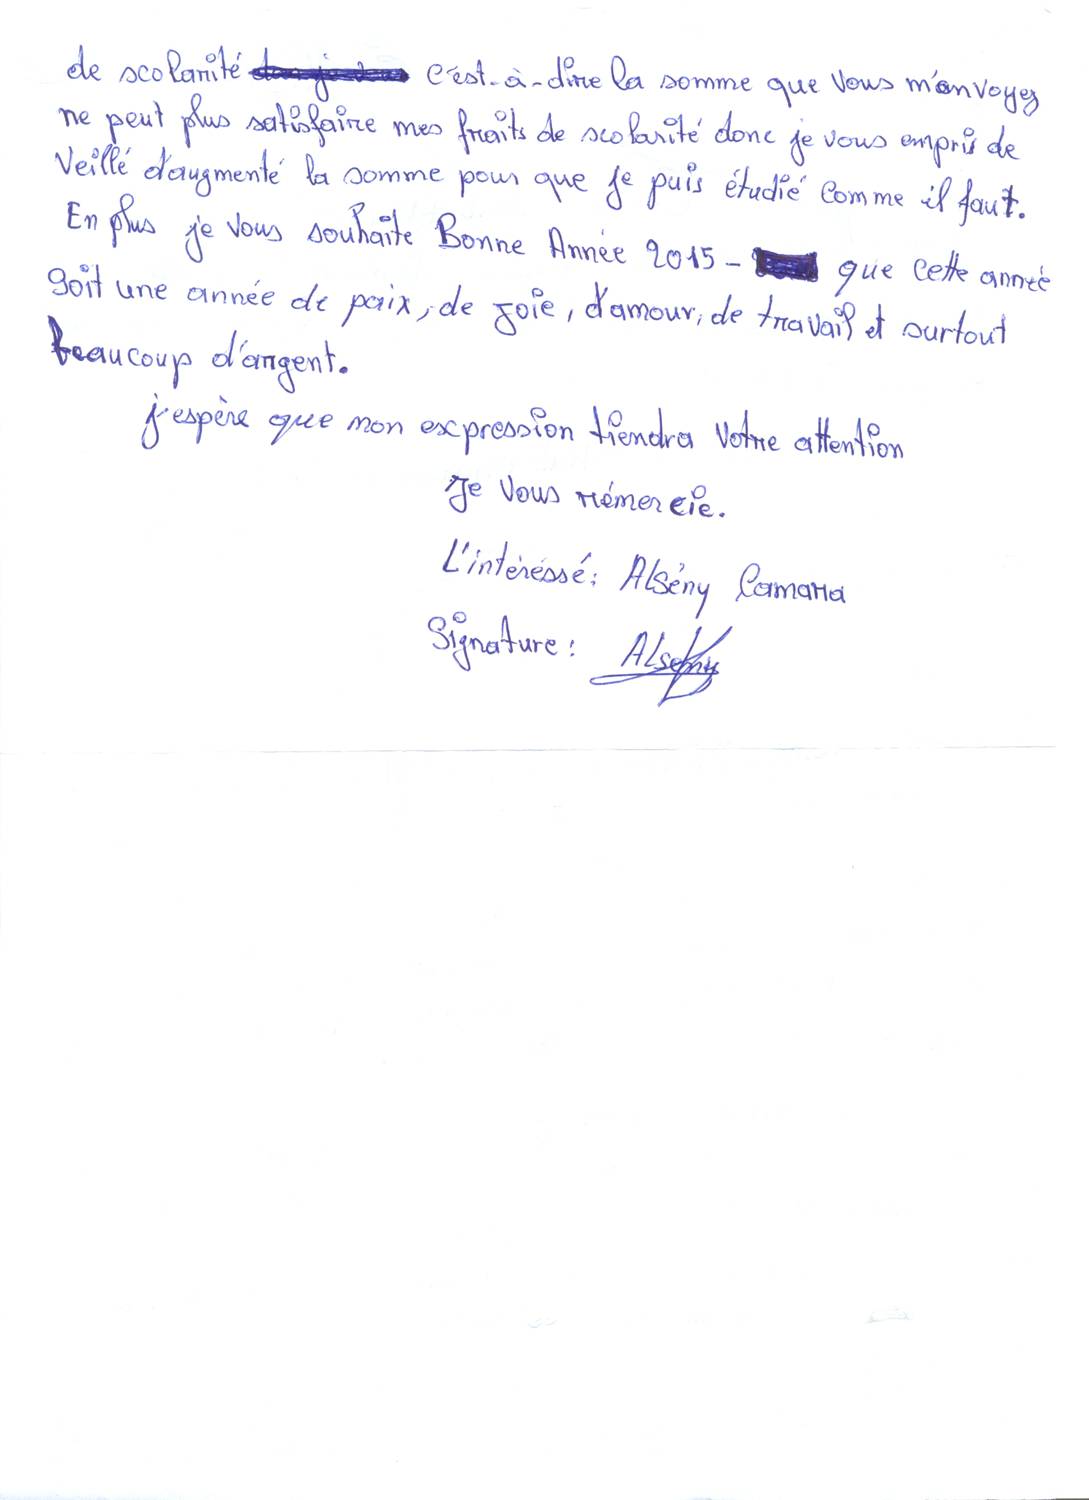 de scolarité c'est-à-dire la somme que vous m'envoyez
ne peut plus satisfaire mes fraits de scolarité donc je vous empris de
veillé d'augmenté la somme pour que je puis étudié comme il faut.
En plus je vous souhaite Bonne Année 2015 - que cette année
soit une année de paix, de joie, d'amour, de travail et surtout
beaucoup d'argent.
j'espère que mon expression tiendra votre attention
Je vous rémercie.
L'intéréssé: Alsény Camara
Signature: Alseny